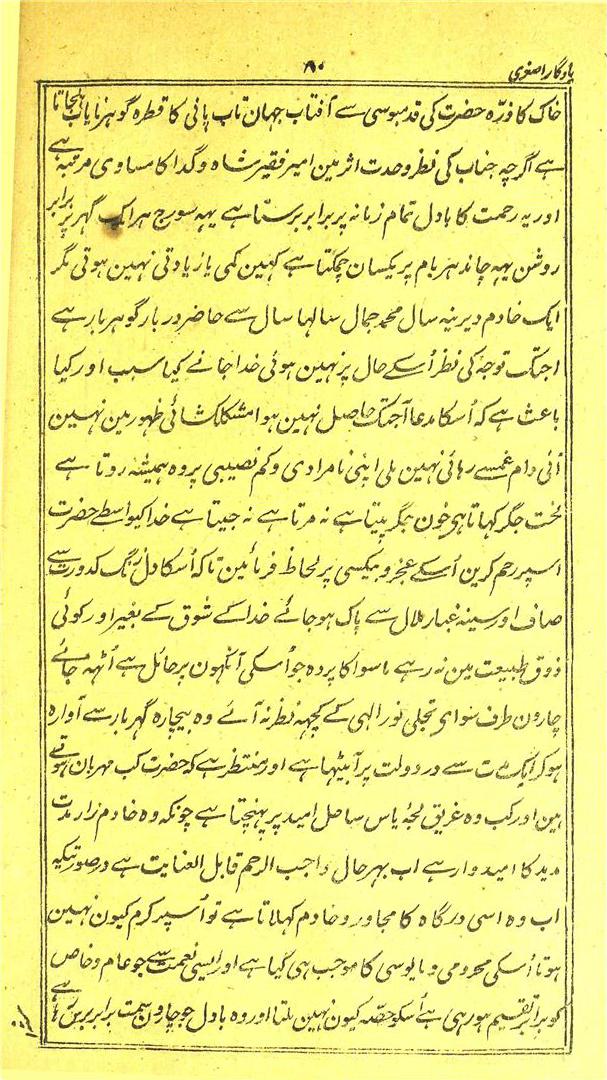 یادگار اصغری
۸۰
خاک کا ذرّہ حضرت کی قدمبوسی سے آفتاب جہان تاب پانی کا قطرہ گوہر نایاب بنجاتا
ہے اگرچہ جناب کی نظر وحدت اثر مین امیر فقیر شاہ و گدا کا مساوی مرتبہ ہے
اور یہ رحمت کا بادل تمام زمانہ پر برابر برستا ہے یہہ سورج ہر ایک گہر پر برابر
روشن یہہ چاند ہر بام پر یکسان چمکتا ہے کہین کمی یا زیادتی نہین ہوتی مگر
ایک خادم دیرینہ سال محمد جمال سالہا سال سے حاضر دربار گوہر بار ہے
اجتک توجہ کی نظر اُسکے حال پر نہین ہوئی خدا جانے کیا سبب اور کیا
باعث ہے کہ اُسکا مدعا آجتک حاصل نہین ہوا مشکلکشائی ظہور مین نہین
آئی دام غم سے رہائی نہین ملی اپنی نامرادی و کم نصیبی پر وہ ہمیشہ روتا ہے
لخت جگر کہاتا ہی خون جگر پیتا ہے نہ مرتا ہے نہ جیتا ہے خدا کیواسطے حضرت
اسپر رحم کرین اُسکے عجز و بیکسی پر لحاظ فرمائین تاکہ اُسکا دل زنگ کدورت سے
صاف اور سینہ غبار ملال سے پاک ہو جائے خدا کے شوق کے بغیر اور کوئی
ذوق طبیعت مین نہ رہے ماسوا کا پردہ جو اُسکی آنکہون پر حائل ہے اُٹہہ جائے
چارون طرف سوای تجلی نور الہی کے کچہہ نظر نہ آئے وہ بیچارہ گہر بار سے آوارہ
ہو کر ایک مدت سے در دولت پر آبیٹہا ہے اور منتظر ہے کہ حضرت کب مہربان ہوتے
ہین اور کب وہ غریق لجہ یاس ساحل امید پر پہنچتا ہے چونکہ وہ خادم زار مدت
مدید کا امیدوار ہے اب بہر حال واجب الرحم قابل العنایت ہے در صورتیکہ
اب وہ اسی درگاہ کا مجاور و خادم کہلاتا ہے تو اُسپر کرم کیون نہین
ہوتا اُسکی محرومی و مایوسی کا موجب ہی کیا ہے اور ایسی نعمت سے جو عام و خاص
کو برابر تقسیم ہو رہی ہے اُسکو حصّہ کیون نہین ملتا اور وہ بادل جو چارون سمت برابر برس رہا ہے